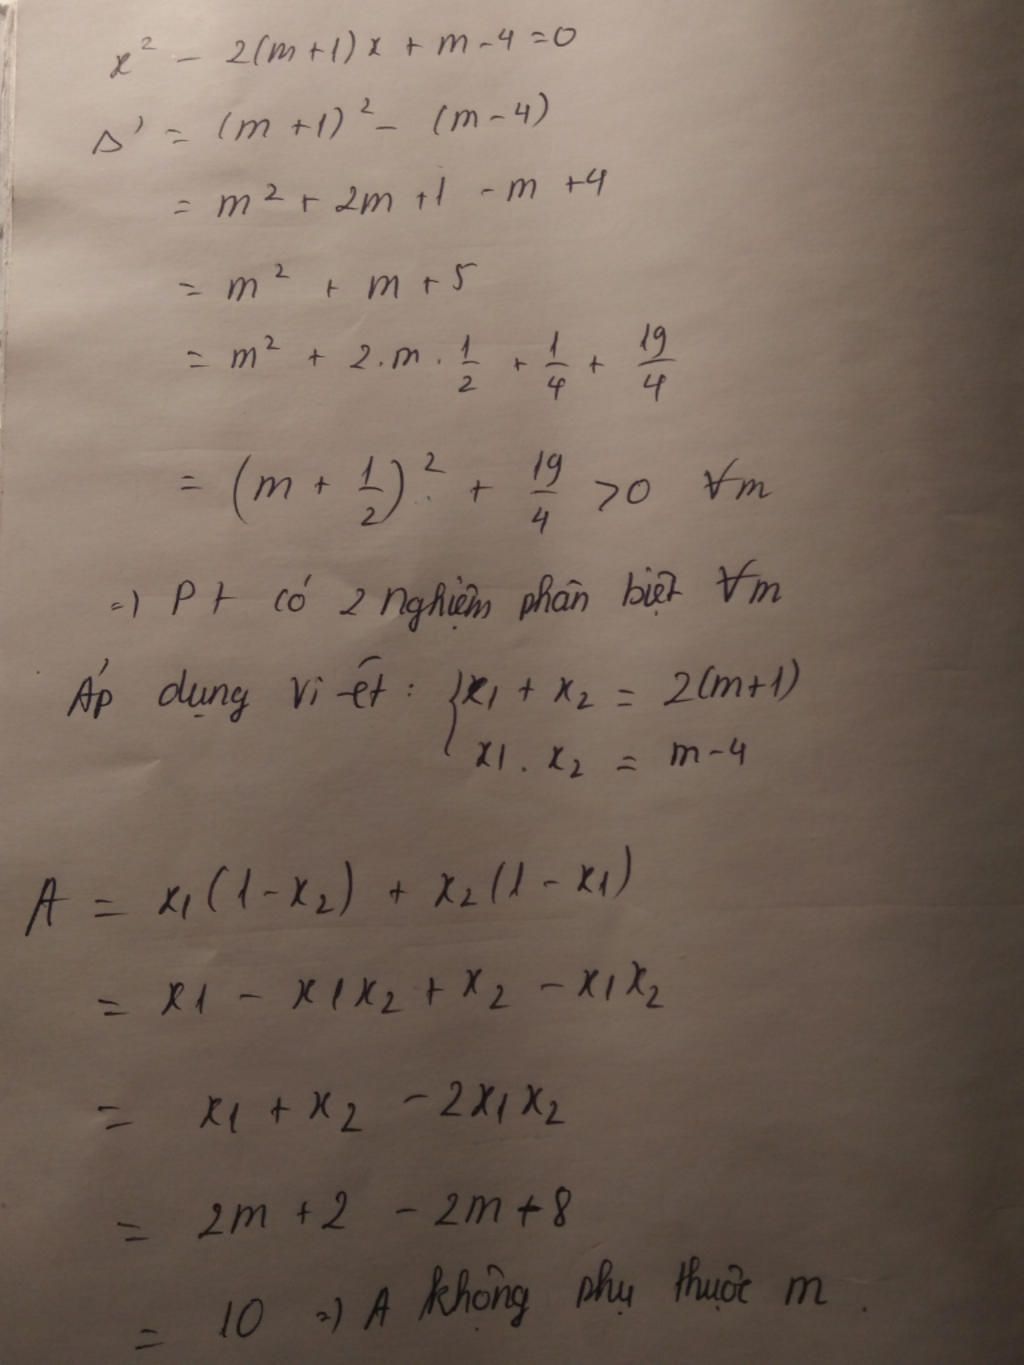 x² - 2(m+1)x + m-4=0
Δ' = (m+1)² - (m-4)
= m² + 2m +1 - m +4
= m² + m + 5
= m² + 2.m.1/2 + 1/4 + 19/4
= (m + 1/2)² + 19/4 >0 ∀m
=) Pt có 2 nghiệm phân biệt ∀m
Áp dụng Vi-ét: { x1 + x2 = 2(m+1)
x1 . x2 = m-4
A = x1(1-x2) + x2(1-x1)
= x1 - x1x2 + x2 - x1x2
= x1 + x2 - 2x1x2
= 2m +2 - 2m+8
= 10 =) A không phụ thuộc m.